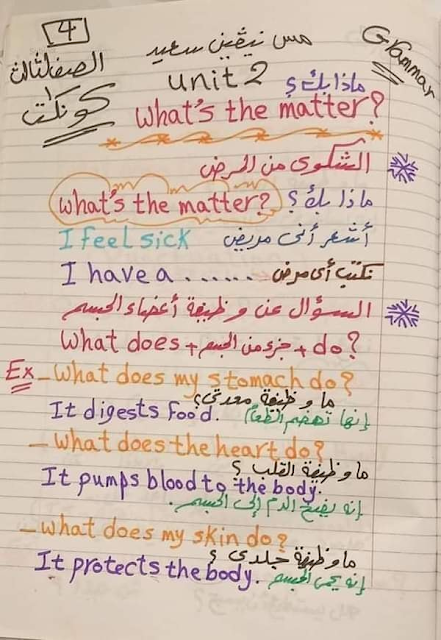 4
مس نيڤين سعيد
Grammar
الصف الثالث
كونكت ١
unit 2
ماذا بك؟
What's the matter?
الشكوى من المرض
What's the matter? ماذا بك؟
I feel sick أشعر أنى مريض
I have a ....... نكتب أى مرض
السؤال عن وظيفة أعضاء الجسم
What does + جزء من الجسم + do?
Ex - What does my stomach do?
ما وظيفة معدتى؟
It digests food. إنها تهضم الطعام
- What does the heart do?
ما وظيفة القلب؟
It pumps blood to the body.
إنه يضخ الدم إلى الجسم.
- What does my skin do?
ما وظيفة جلدى؟
It protects the body. إنه يحمى الجسم